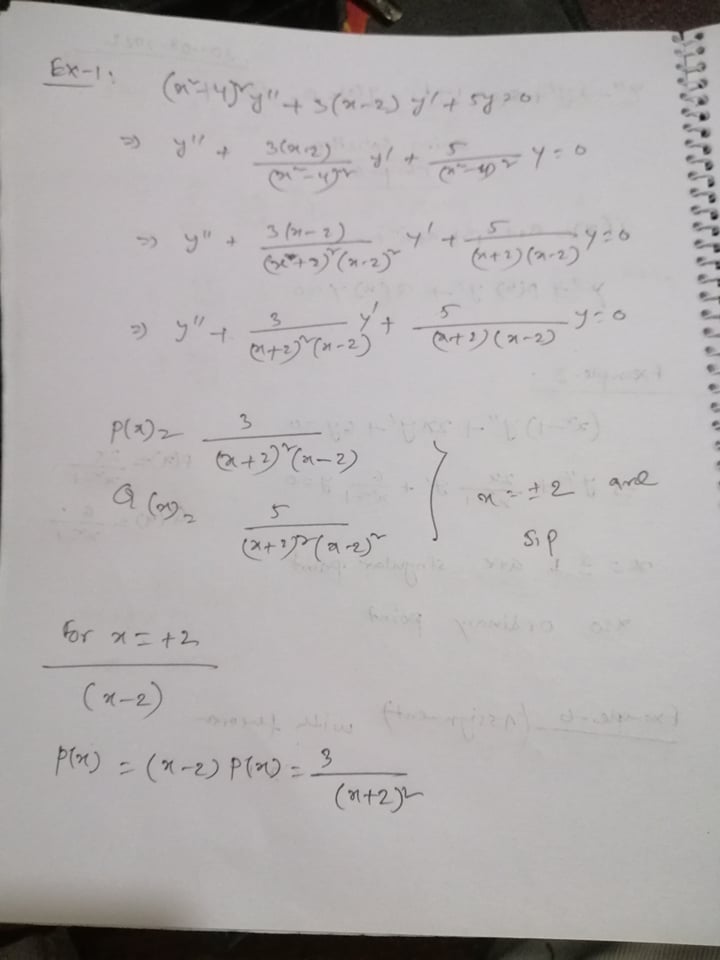 Ex-1: (x²-4)² y'' + 3(x-2) y' + 5y = 0
⇒ y'' + 3(x-2)/(x²-4)² y' + 5/(x²-4)² y = 0
⇒ y'' + 3(x-2)/(x+2)²(x-2)² y' + 5/(x+2)(x-2) y = 0
⇒ y'' + 3/(x+2)²(x-2) y' + 5/(x+2)(x-2) y = 0
P(x) = 3/(x+2)²(x-2)
Q(x) = 5/(x+2)²(x-2)² } x = ±2 are S.P
For x = +2
(x-2)
p(x) = (x-2) P(x) = 3/(x+2)²